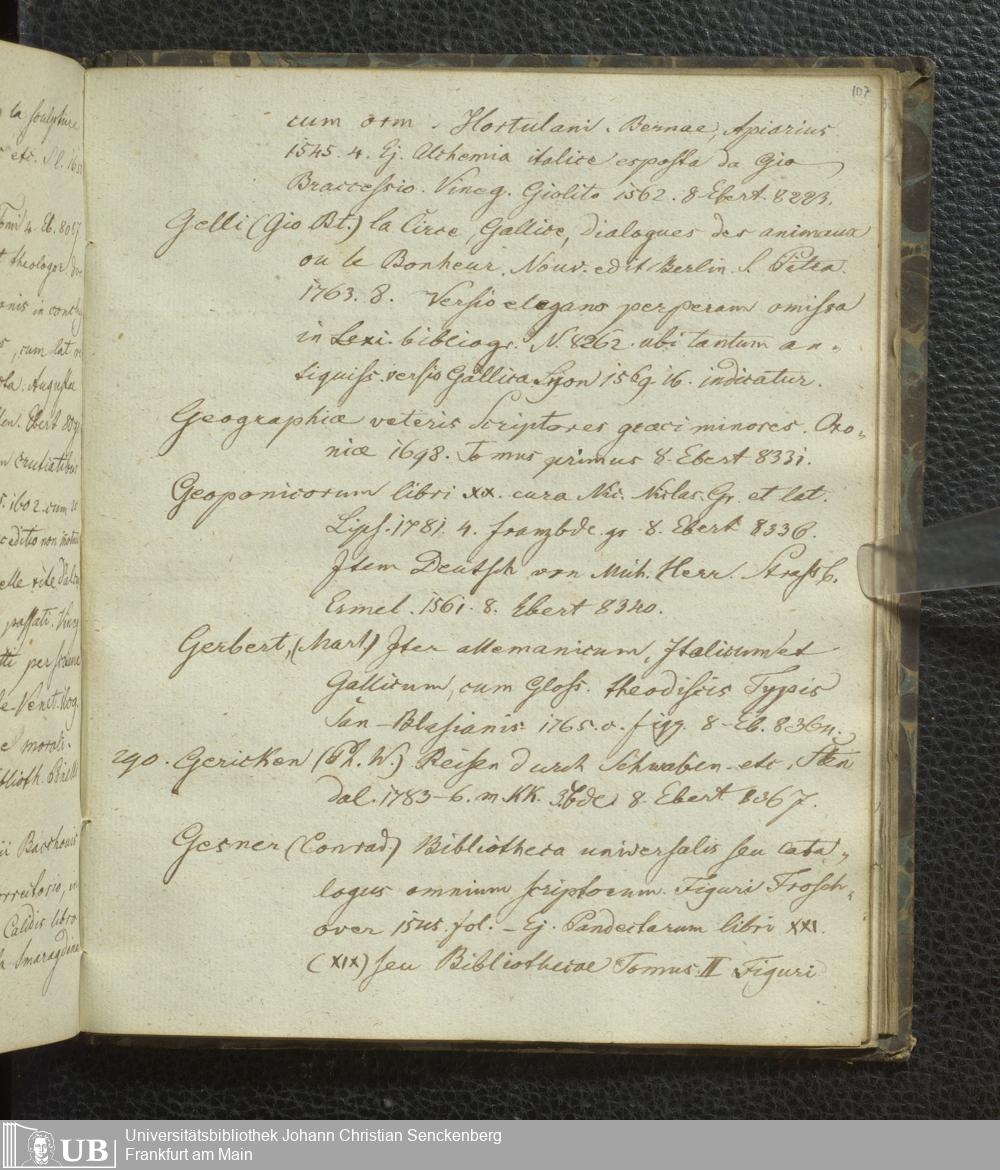 107
cum orn. Hortulani. Bernae, Apiarius
1545. 4. Ej. Alchemia italice esposta da Gio
Braccessio. Vineg. Giolito 1562. 8 Ebert. 8223.
Gelli (Gio Bt.) la Circe, Gallice, dialogues des animaux
ou le Bonheur. Nouv. edit Berlin. S. Petra.
1763. 8. Versio elegans perperam omissa
in Lexi. bibliogr. N. 8262. ubi tantum an-
tiquiss. versio Gallica Lyon 1569. 16. indicatur.
Geographiæ veteris Scriptores græci minores. Oxo-
niæ 1698. Tomus primus 8. Ebert 8331.
Geoponicorum libri XX. cura Nic. Niclas. Gr. et lat.
Lips. 1781. 4. franzbde. gr. 8. Ebert 8336.
Item Deutsch von Mich. Herr. Strassb.
Esmel. 1561. 8. Ebert 8340.
Gerbert, (Mart) Iter allemanicum, Italicum et
Gallicum, cum Gloss. theodiscis Typis
San-Blasianis 1765. c. figg. 8 - Eb. 8364.
290. Gericken (Ph. W.) Reisen durch Schwaben etc. Sten
dal. 1783-6. m KK. 3 bde. 8. Ebert 8367.
Gesner (Conrad) Bibliotheca universalis seu cata-
logus omnium scriptorum. Figuri Frosch-
over 1545. fol. - Ej. Pandectarum libri XXI.
(XIX) seu Bibliothecae Tomus. II Figuri
la sculpture
etc.
Tom 4. Eb. 8057
theologor
onis in
cum lat
Augusta
Ebert
cruciatibus
1602. cum
editio non
passati. Vineg
Venet.
morali.
Biblioth.
Calidis libro
Smaragdina
UB
Universitätsbibliothek Johann Christian Senckenberg
Frankfurt am Main